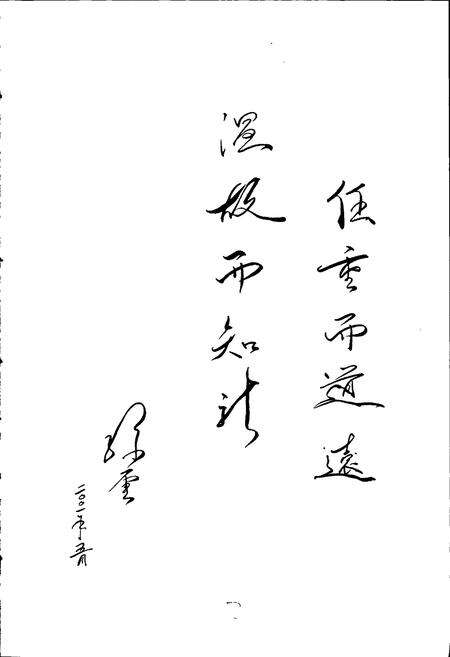 任重而道遠
溫故而知新
雲
二〇一年五月